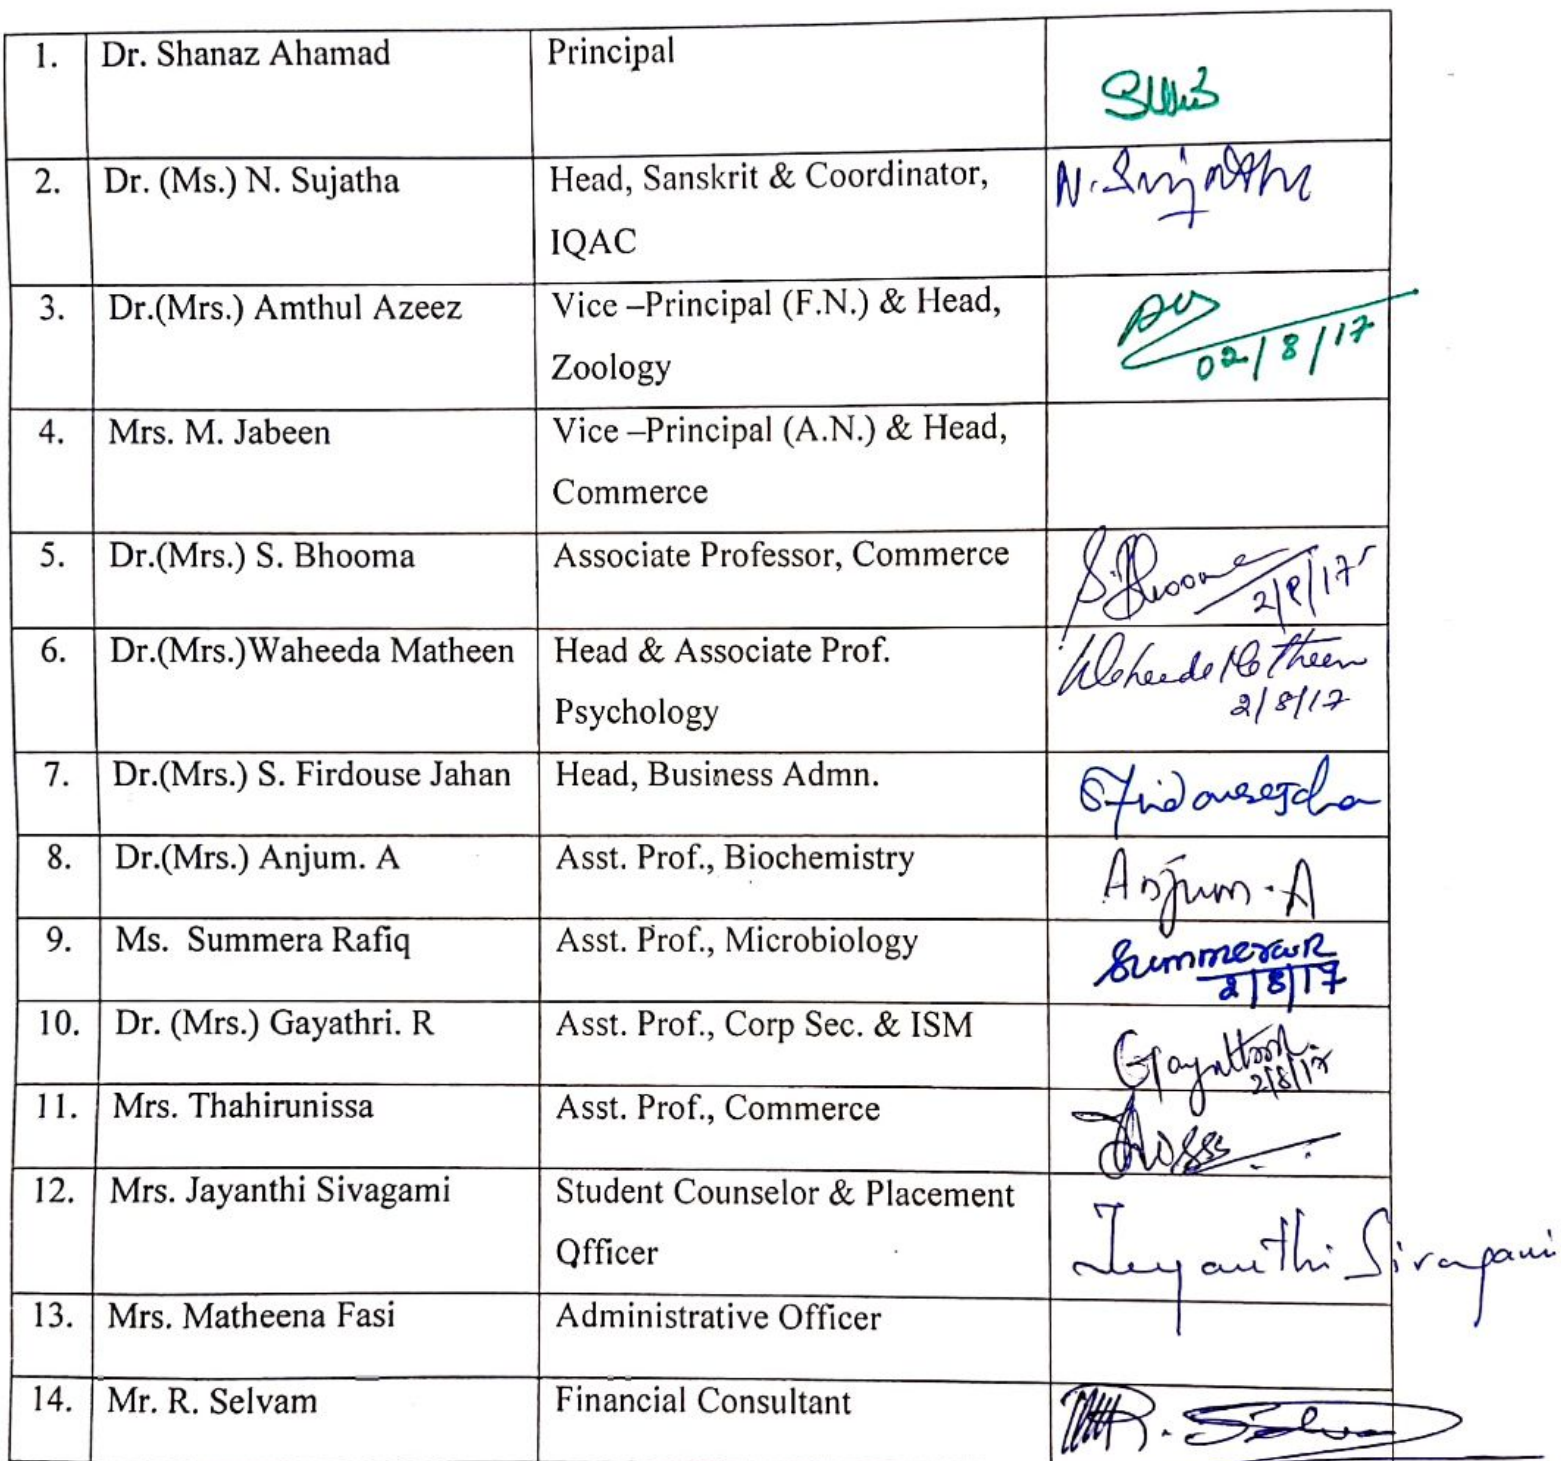 1. Dr. Shanaz Ahamad Principal
2. Dr. (Ms.) N. Sujatha Head, Sanskrit & Coordinator, N. Sujatha
IQAC
3. Dr.(Mrs.) Amthul Azeez Vice –Principal (F.N.) & Head,
Zoology 02/8/17
4. Mrs. M. Jabeen Vice –Principal (A.N.) & Head,
Commerce
5. Dr.(Mrs.) S. Bhooma Associate Professor, Commerce S. Bhooma
2/8/17
6. Dr.(Mrs.)Waheeda Matheen Head & Associate Prof. Waheeda Matheen
Psychology 2/8/17
7. Dr.(Mrs.) S. Firdouse Jahan Head, Business Admn.
8. Dr.(Mrs.) Anjum. A Asst. Prof., Biochemistry Anjum. A
9. Ms. Summera Rafiq Asst. Prof., Microbiology Summera R
2/8/17
10. Dr. (Mrs.) Gayathri. R Asst. Prof., Corp Sec. & ISM Gayathri
2/8/17
11. Mrs. Thahirunissa Asst. Prof., Commerce
12. Mrs. Jayanthi Sivagami Student Counselor & Placement
Officer Jayanthi Sivagami
13. Mrs. Matheena Fasi Administrative Officer
14. Mr. R. Selvam Financial Consultant R. Selvam